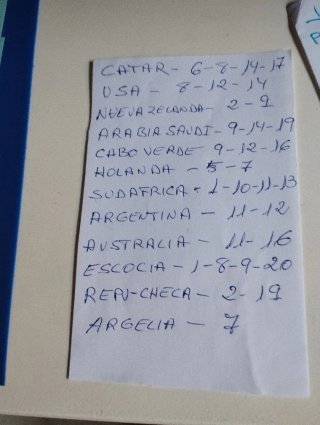 CATAR - 6-8-14-17
USA - 8-12-14
NUEVA ZELANDA - 2-9
ARABIA SAUDI - 9-14-19
CABO VERDE 9-12-16
HOLANDA - 5-7
SUDAFRICA - 1-10-11-13
ARGENTINA - 11-12
AUSTRALIA - 11-16
ESCOCIA - 1-8-9-20
REPU-CHECA - 2-19
ARGELIA - 7